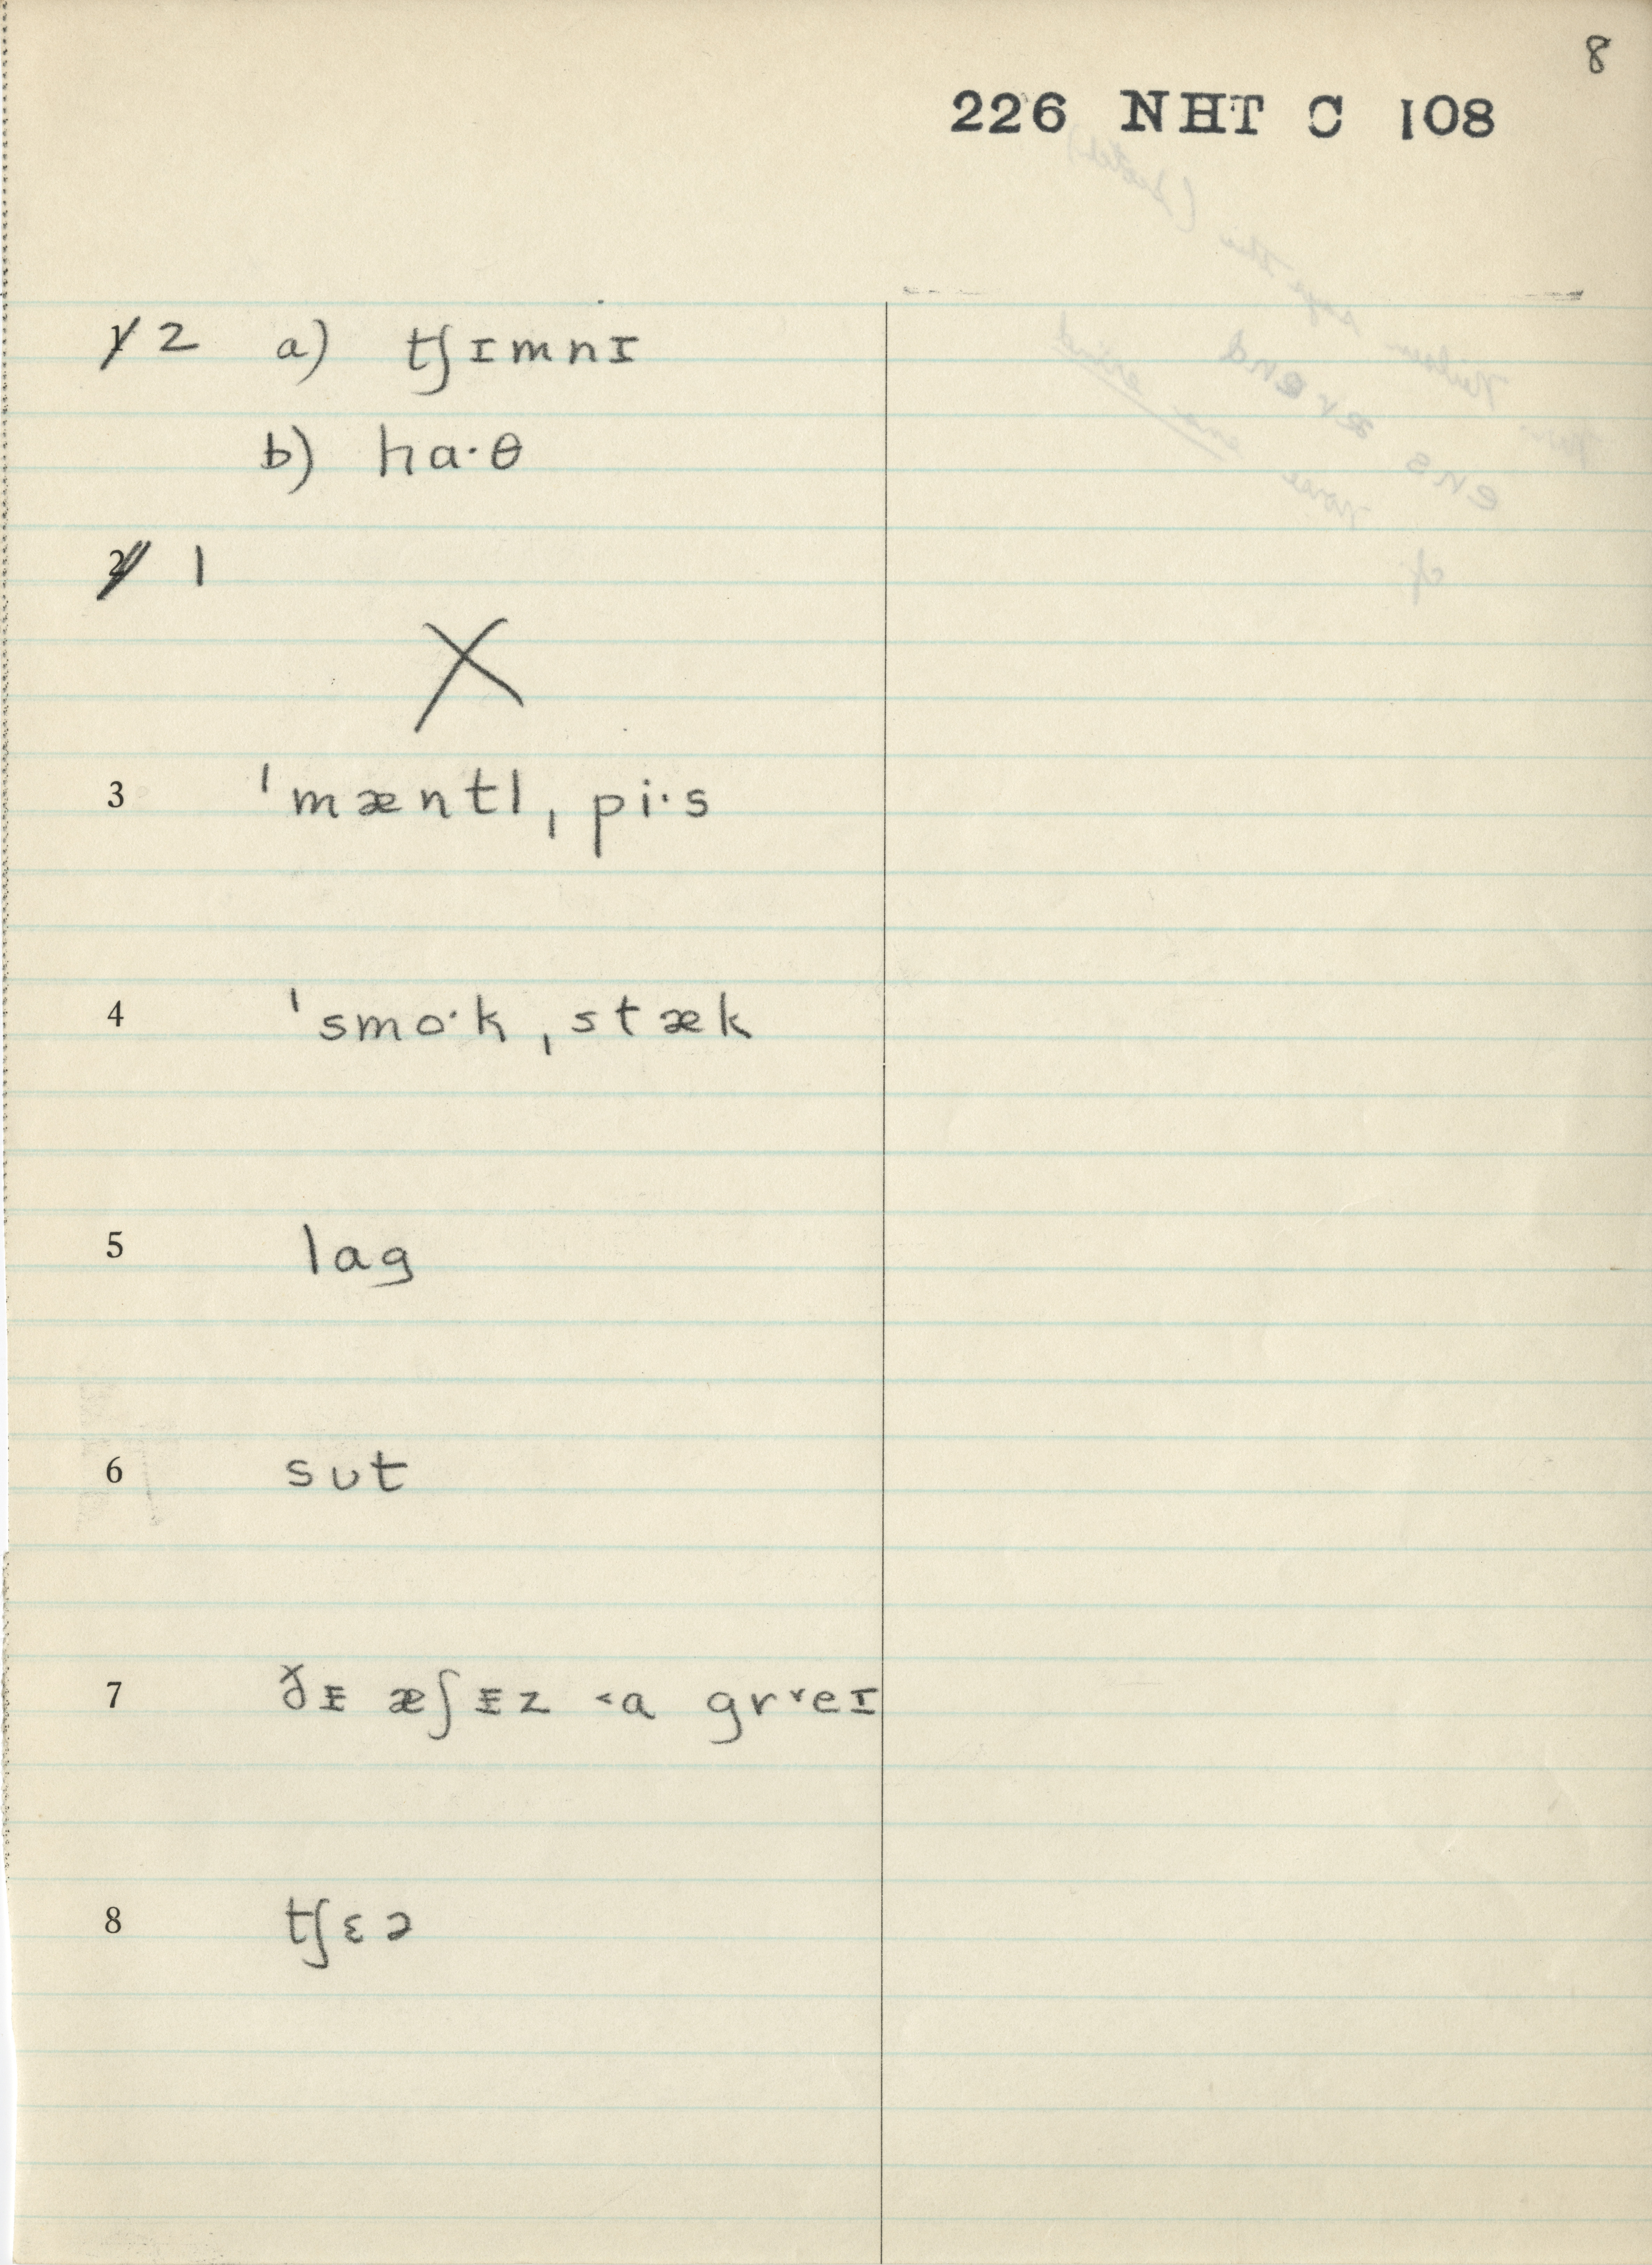 8
226 NHT C 108
1 2 a) tʃɪmnɪ
b) ha·θ
2 1
X
3 ˈmæntl ˌpi·s
4 ˈsmo·k ˌstæk
5 lag
6 sʊt
7 ɪ̵ æʃɪ̵z ˂a gr˅eɪ
8 tʃɛə